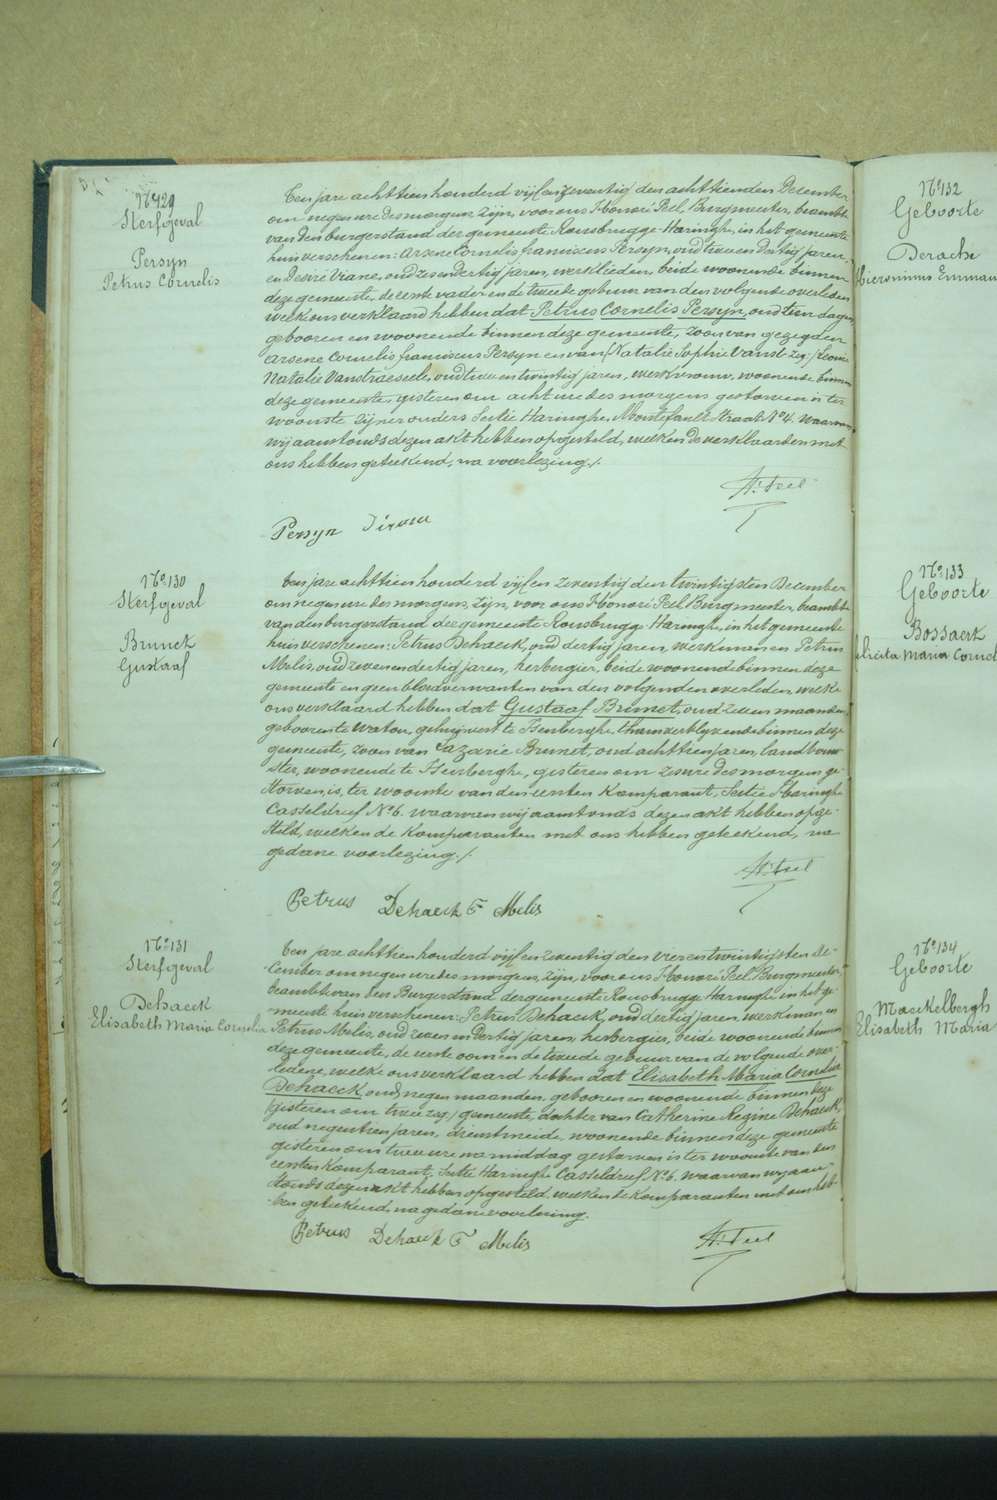 No 129
Sterfgeval
Persyn
Petrus Cornelis
Ten jare achttien honderd vijf en zeventig den achttienden December
om negen ure des morgens, zijn, voor ons Honoré Peel, Burgmeester, beambte
van den burgerstand der gemeente Rousbrugge-Haringhe, in het gemeente
huis verschenen: Arsene Cornelis Franciscus Persyn, oud twee en dertig jaren,
en Desiré Viane, oud zes en dertig jaren, werklieden, beide woonende binnen
deze gemeente, de eerste vader en de tweede gebuur van den volgende overleden
welk ons verklaard hebben dat Petrus Cornelis Persyn, oud tien dagen,
gebooren en woonende binnen deze gemeente, zoon van gezegden
Arsene Cornelis Franciscus Persyn en van (Natalie Sophie Vanst zeg:) Leonie
Natalie Vanstraeseele, oud twee en twintig jaren, werkvrouw, woonende binnen
deze gemeente, gisteren om acht ure des morgens gestorven is ter
woonste zijner ouders Sectie Haringhe, straat No 4. waarvan
wij aanstonds dezen akt hebben opgesteld, welken de verklaarden met
ons hebben geteekend, na voorlezing./.
H. Peel
Persyn
No 130
Sterfgeval
Brunet
Gustaaf
Ten jare achttien honderd vijf en zeventig den twintigsten December
om negen ure des morgens, zijn, voor ons Honoré Peel Burgmeester, beambte
van den burgerstand der gemeente Rousbrugg-Haringhe, in het gemeente
huis verschenen: Petrus Dehaeck, oud dertig jaren, werkman en Petrus
Melis, oud zeven en dertig jaren, herbergier, beide woonende binnen deze
gemeente en geen bloedverwanten van den volgenden overleden, welke
ons verklaard hebben dat Gustaaf Brunet, oud zeven maanden,
gebooren te Watou, gehuisvest te Isenberghe, thans verblyvende binnen deze
gemeente, zoon van Lazarie Brunet, oud achttien jaren, landbouw-
ster, woonende te Isenberghe, gisteren om zes ure des morgens ge-
storven, is, ter woonste van den eersten komparant, Sectie Haringhe
Casseldreef No 6. waarvan wij aanstonds dezen akt hebben opge-
steld, welken de komparanten met ons hebben geteekend, na
gedane voorlezing./.
H. Peel
Petrus Dehaeck P Melis
No 131
Sterfgeval
Dehaeck
Elisabeth Maria Cornelia
Ten jare achttien honderd vijf en zeventig den vier en twintigsten De-
cember om negen ure des morgens, zijn, voor ons Honoré Peel, Burgmeester,
beambte van den Burgerstand der gemeente Rousbrugg Haringhe in het ge-
meente huis verschenen: Petrus Dehaeck, oud dertig jaren, werkman en
Petrus Melis, oud zeven en dertig jaren, herbergier, beide woonende binnen
deze gemeente, de eerste oom en de tweede gebuur van de volgende over-
ledene, welke ons verklaard hebben dat Elisabeth Maria Cornelia
Dehaeck, oud negen maanden, gebooren en woonende binnen deze
(gisteren om twee zeg:) gemeente, dochter van Catherine Regine Dehaeck,
oud negentien jaren, dienstmeide, woonende binnen deze gemeente
gisteren om twee ure na middag gestorven is ter woonste van den
eersten komparant, Sectie Haringhe Casseldreef No 6. waarvan wij aan-
stonds dezen akt hebben opgesteld, welken de komparanten met ons heb-
ben geteekend, na gedane voorlezing.
Petrus Dehaeck P Melis
H. Peel
No 132
Geboorte
Derache
Hieronimus Emman
No 133
Geboorte
Bossaert
elicita Maria Cornel
No 134
Geboorte
Maeckelbergh
Elisabeth Maria